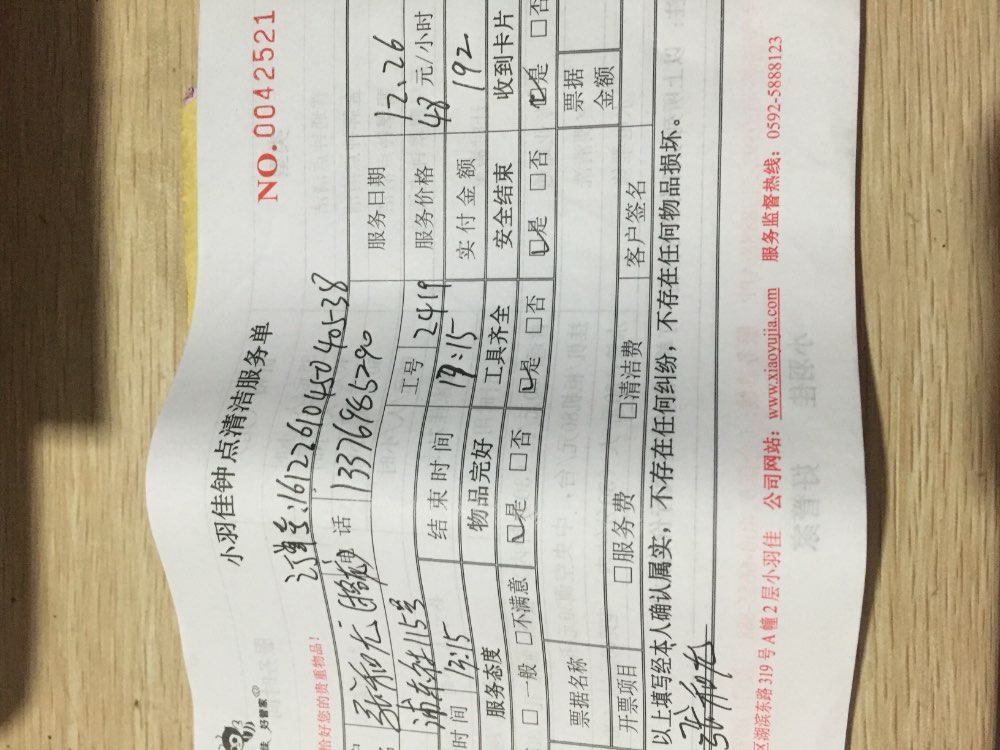 小羽佳钟点清洁服务单
NO.0042521
好管家
订单号:16122610450240538
恰好您的贵重物品!
话 13376985290 服务日期 12.26
浦东路115号 工号 2419 服务价格 48 元/小时
时间 15:15 结束时间 19:15 实付金额 192
服务态度 物品完好 工具齐全 安全结束 收到卡片
□ 一般 □不满意 ☑是 □否 ☑是 □否 ☑是 □否 ☑是 □否
票据名称 票据金额
开票项目 □服务费 □清洁费 客户签名
以上填写经本人确认属实，不存在任何纠纷，不存在任何物品损坏。
区湖滨东路 319 号 A 幢 2 层小羽佳 公司网站：www.xiaoyujia.com 服务监督热线：0592-5888123